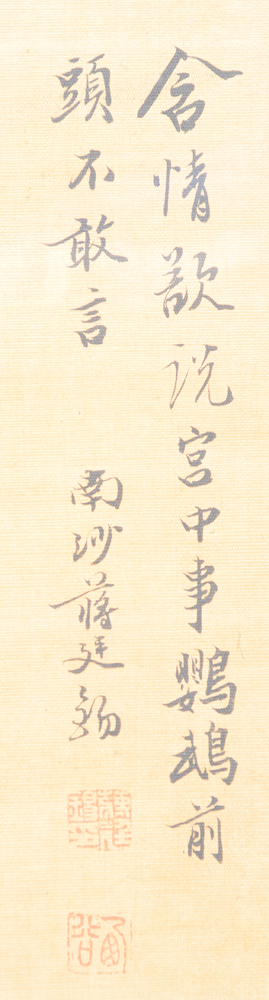 含情欲說宮中事鸚鵡前
頭不敢言
南沙蔣廷錫